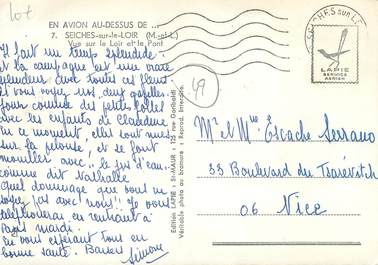 10 F
EN AVION AU-DESSUS DE ...
7. SEICHES-sur-le-LOIR (M.-et-L.)
Vue sur le Loir et le Pont
SEICHES SUR LE
LAPIE
SERVICE
AERIEN
49
Il fait un temps splendide
et la campagne est une vraie
splendeur avec toutes ces fleurs
si vous voyez vos deux gazelles
jour comme des petites folles
avec les enfants de Claudine
en ce moment, elles sont nues
sur la pelouse, et se font
mouiller avec "le jet d'eau"
comme dit Nathalie
Quel dommage que vous ne
soyez pas avec nous!! Je vous
téléphonerai en rentrant à
Paris mardi.
En vous espérant tous en
bonne santé. Baisers Simone
Edition LAPIE - St-MAUR : 125 rue Garibaldi
Véritable photo au bromure - Reprod. interdite.
Mr et Mme Escache Serrano
33 Boulevard du Tzaréwitch
06 Nice